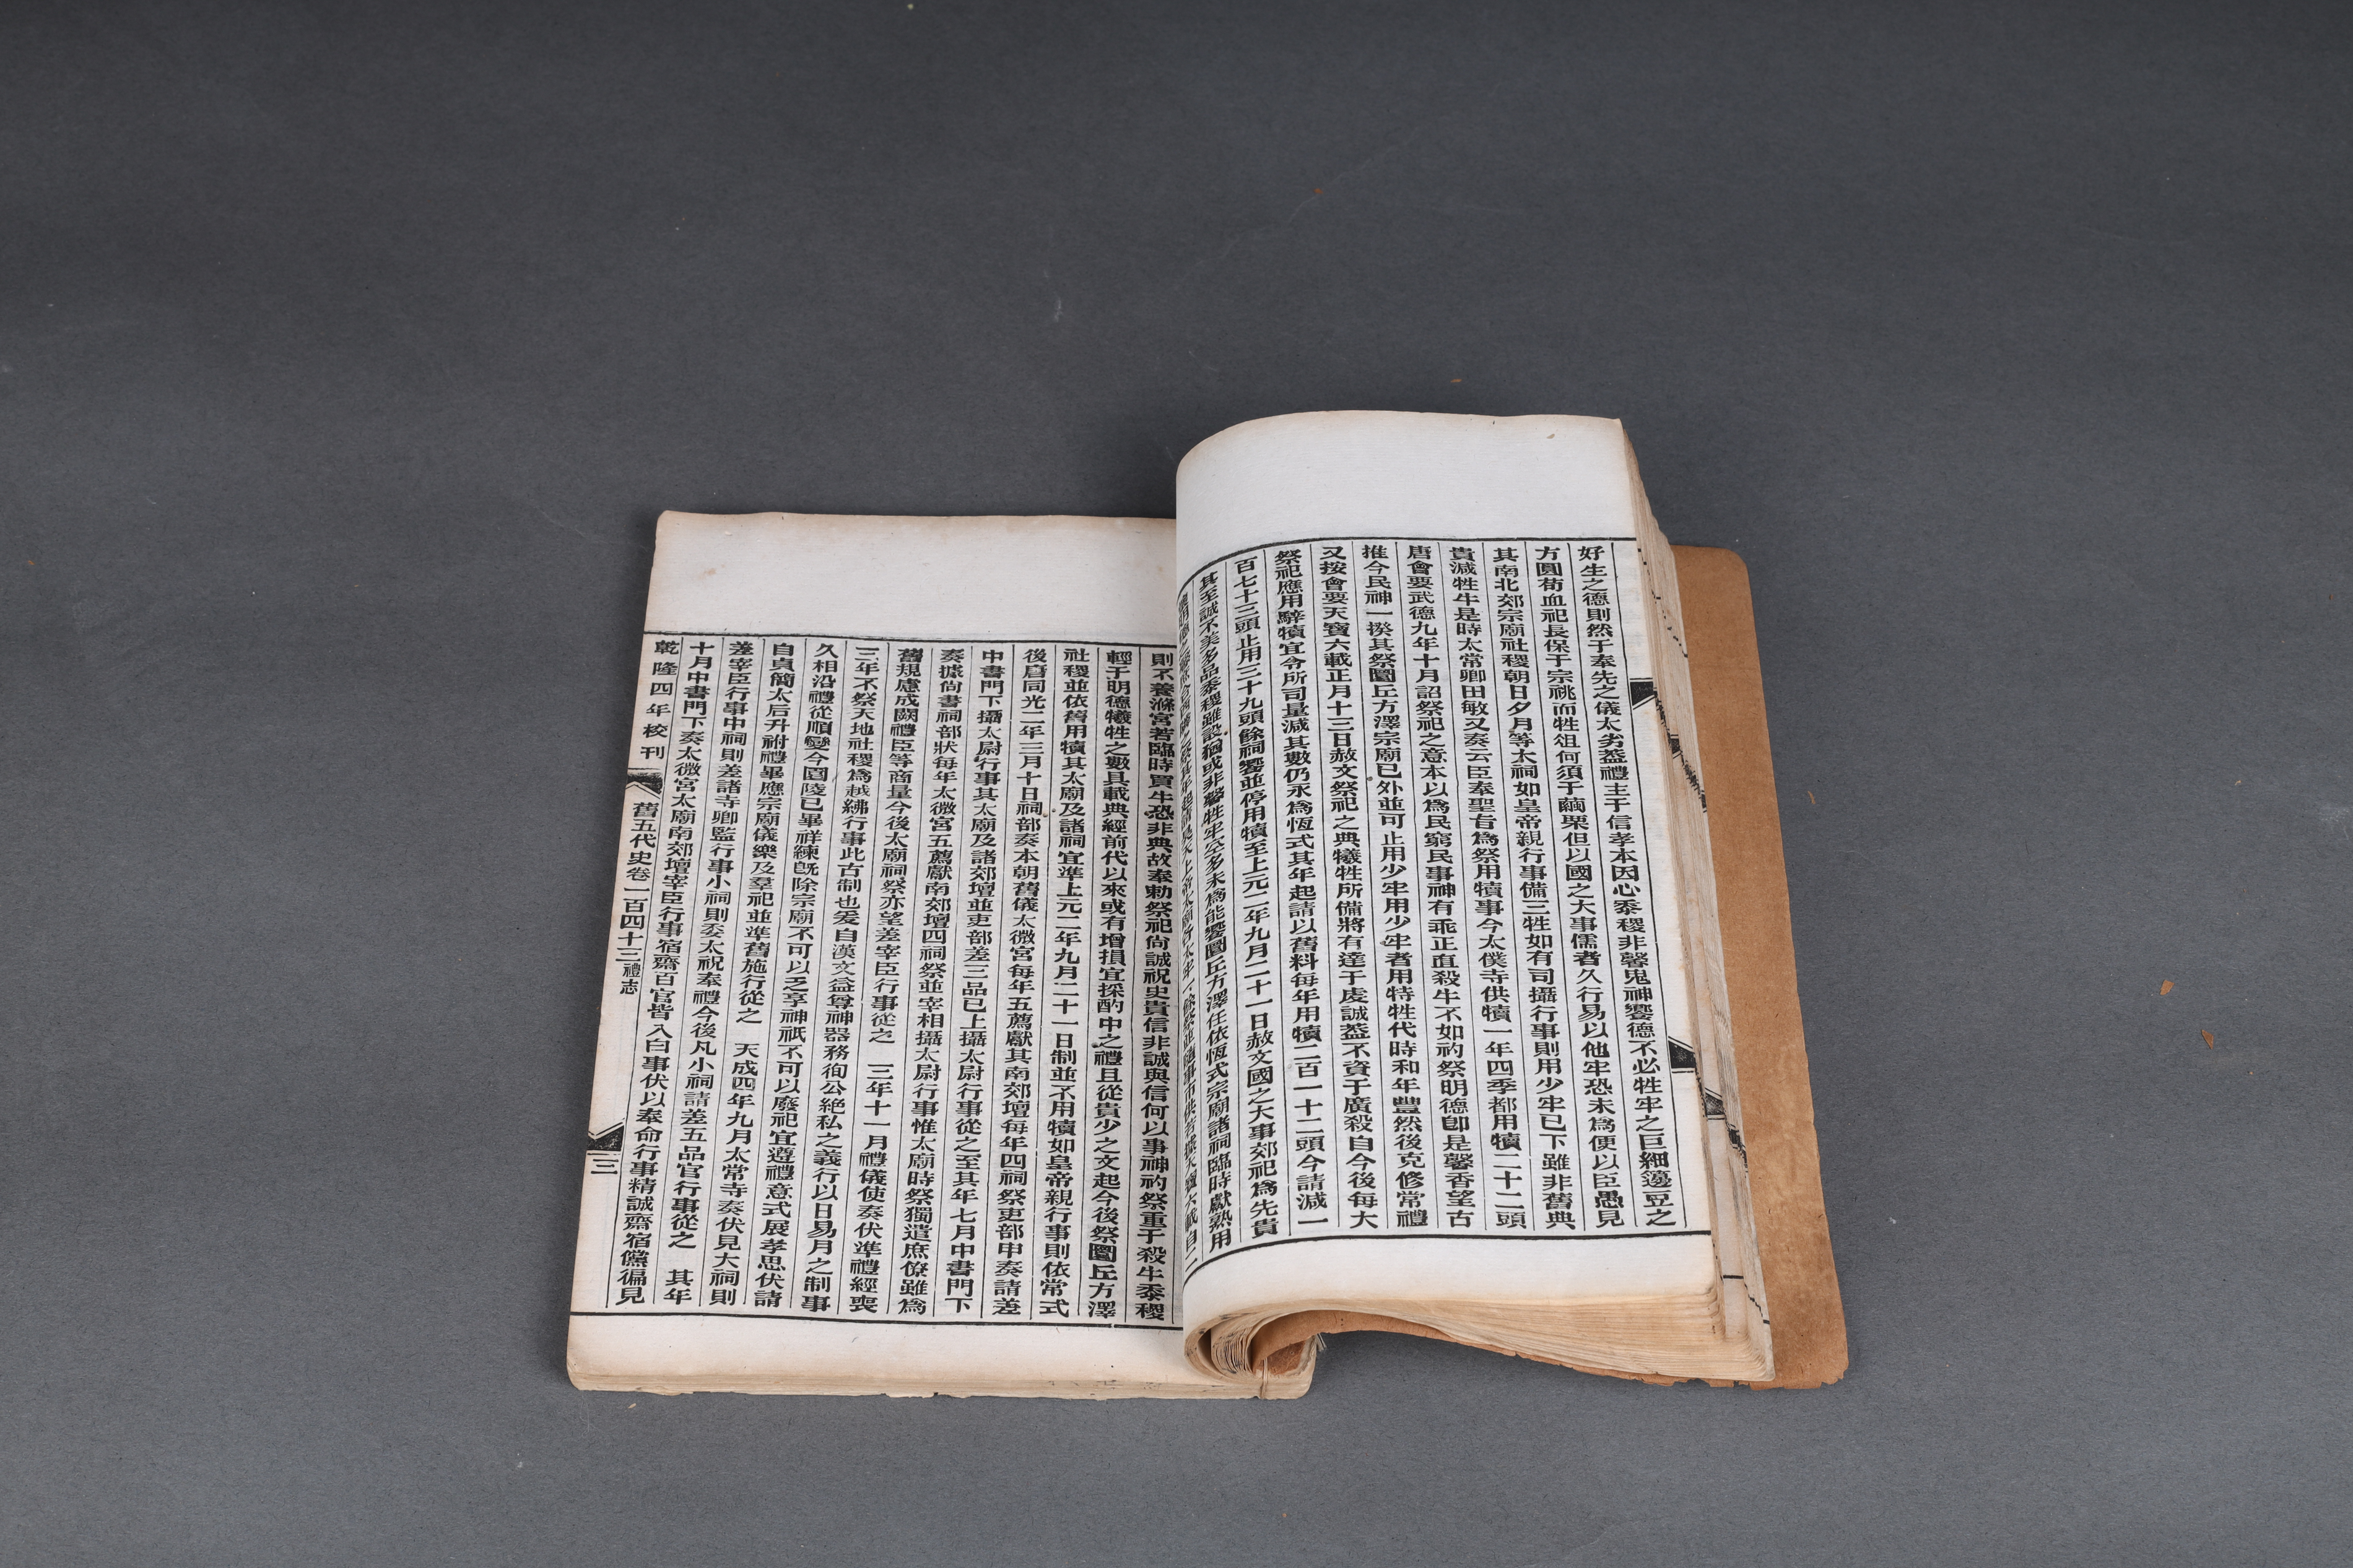 好生之德則然于奉先之儀太劣葢禮主于信孝本因心黍稷非馨鬼神饗德不必牲牢之巨細籩豆之
方圓苟血祀長保于宗祧而牲俎何須于繭栗但以國之大事儒者久行易以他牢恐未爲便以臣愚見
其南北郊宗廟社稷朝日夕月等大祠如皇帝親行事備三牲如有司攝行事則用少牢已下雖非舊典
貴減牲牛是時太常卿田敏又奏云臣奉聖旨爲祭用犢事今太僕寺供犢一年四季都用犢二十二頭
唐會要武德九年十月詔祭祀之意本以爲民窮民事神有乖正直殺牛不如礿祭明德卽是馨香望古
推今民神一揆其祭圜丘方澤宗廟已外並可止用少牢用少牢者用特牲代時和年豐然後克修常禮
又按會要天寶六載正月十三日赦文祭祀之典犧牲所備將有達于虔誠葢不資于廣殺自今後每大
祭祀應用騂犢宜令所司量減其數仍永爲恆式其年起請以舊料每年用犢二百一十二頭今請減一
百七十三頭止用三十九頭餘祠饗並停用犢至上元二年九月二十一日赦文國之大事郊祀爲先貴
其至誠不美多品黍稷雖設猶或非馨牲牢空多未爲能饗圜丘方澤任依恆式宗廟諸祠臨時獻熟用
則不養滌宮若臨時買牛恐非典故奉勅祭祀尚誠祝史貴信非誠與信何以事神礿祭重于殺牛黍稷
輕于明德犧牲之數具載典經前代以來或有增損宜採酌中之禮且從貴少之文起今後祭圜丘方澤
社稷並依舊用犢其太廟及諸祠宜準上元二年九月二十一日制並不用犢如皇帝親行事則依常式
後唐同光二年三月十日祠部奏本朝舊儀太微宮每年五薦獻其南郊壇每年四祠祭吏部申奏請差
中書門下攝太尉行事其太廟及諸郊壇並吏部差三品已上攝太尉行事從之至其年七月中書門下
奏據尚書祠部狀每年太微宮五薦獻南郊壇四祠祭並宰相攝太尉行事惟太廟時祭獨遣庶僚雖爲
舊規慮成闕禮臣等商量今後太廟祠祭亦望差宰臣行事從之　三年十一月禮儀使奏伏準禮經喪
三年不祭天地社稷爲越紼行事此古制也爰自漢文益尊神器務徇公絶私之義行以日易月之制事
久相沿禮從順變今園陵已畢祥練旣除宗廟不可以乏享神祇不可以廢祀宜遵禮意式展孝思伏請
自貞簡太后升祔禮畢應宗廟儀樂及羣祀並準舊施行從之　天成四年九月太常寺奏伏見大祠則
差宰臣行事中祠則差諸寺卿監行事小祠則委太祝奉禮今後凡小祠請差五品官行事從之　其年
十月中書門下奏太微宮太廟南郊壇宰臣行事宿齋百官皆入白事伏以奉命行事精誠齋宿儻徧見
乾隆四年校刊　舊五代史卷一百四十三禮志　三